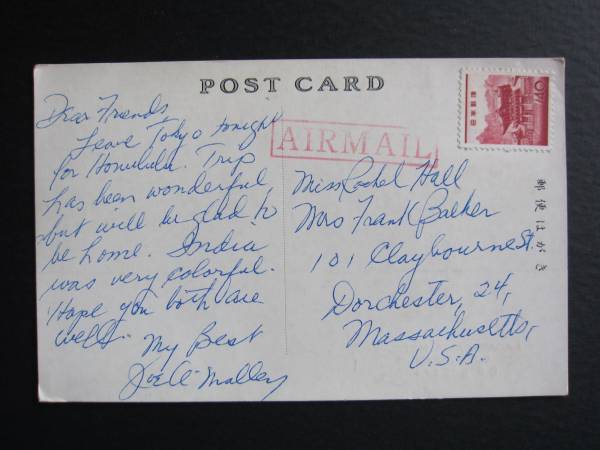 POST CARD
Dear Friends,
Leave Tokyo tonight
for Honolulu. Trip
has been wonderful,
but will be glad to
be home. India
was very colorful.
Hope you both are
well.
My Best
Joe O'Malley
AIRMAIL
Miss Rachel Hall
Mrs Frank Balker
101 Claybourne St.
Dorchester, 24,
Massachusetts,
U.S.A.
郵便はがき